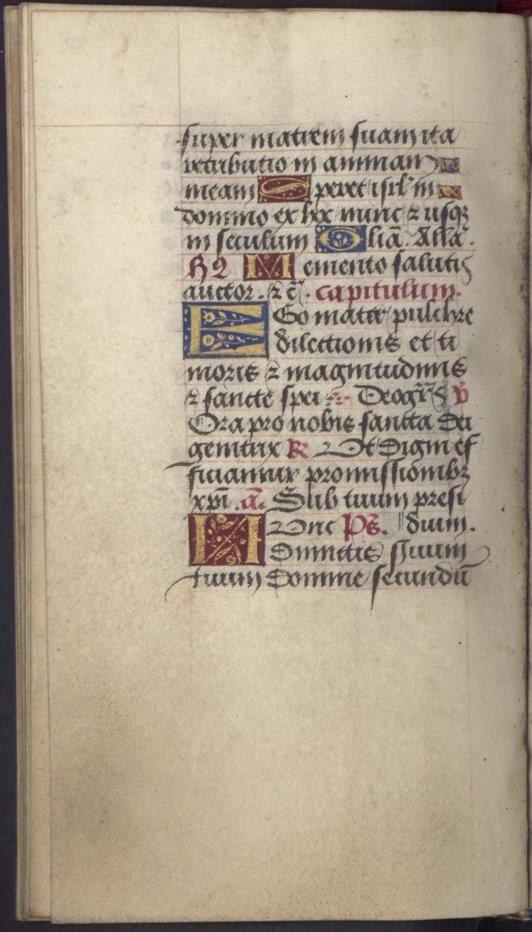 super matrem suam ita
retributio in animam
meam Speret isrl̄ in
domino ex hoc nunc ⁊ usqꝫ
in seculum Gliā. Allā.
h2 Memento salutis
auctor. ⁊ c̄. capitulum.
EGo mater pulchre
dilectionis et ti
moris ⁊ magnitudinis
⁊ sancte spei Deogr̄s v̄
Ora pro nobis sancta dei
genitrix R Ut digni ef
ficiamur promissionibꝫ
xpi. ā. Sub tuum presi
Nunc Ps. dium.
Dimittis servum
tuum Domine secundū